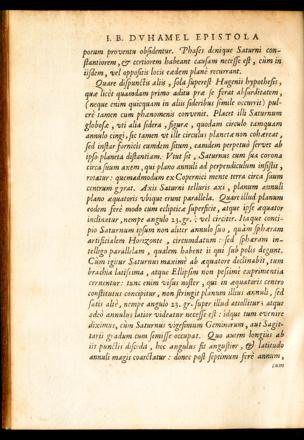 I. B. DVHAMEL EPISTOLA
porum proventu obsidentur. Phases denique Saturni con-
stantiorem, & certiorem habeant causam necesse est, cùm in
iisdem, vel oppositis locis eædem planè recurrant.
Quare dispunctis aliis, sola superest Hugenii hypothesis,
quæ licèt quamdam primo aditu præ se ferat absurditatem,
(neque enim quicquam in aliis sideribus simile occurrit) pul-
crè tamen cum phænomenis convenit. Placet illi Saturnum
globosâ, vti alia sidera, figurâ, quodam circulo tamquam
annulo cingi, sic tamen vt ille circulus planetæ non cohæreat,
sed instar fornicis eumdem situm, eamdem perpetuò servet ab
ipso planeta distantiam. Veut sit, Saturnus cum sua corona
circa suum axem, qui plano annuli ad perpendiculum insistit,
rotatur: quemadmodum ex Copernici mente terra circa suum
centrum gyrat. Axis Saturni telluris axi, planum annuli
plano æquatoris vbique erunt parallela. Quare illud planum
eodem ferè modo cum eclipticæ superficie, atque ipse æquator
inclinatur, nempe angulo 23. gr. ½ vel circiter. Itaque conci-
pio Saturnum ipsum non aliter annulo suo, quàm sphæram
artificialem Horizonte, circumdatum: sed sphæram in-
tellego parallelam, qualem habent ii qui sub polis degunt.
Cùm igitur Saturnus maximè ab æquatore declinabit, tum
brachia latissima, atque Ellipsim non pessimè exprimentia
cernentur: tunc enim visus noster, qui in æquatoris centro
constitutus concipitur, non stringit planum illius annuli, sed
satis altè, nempe angulo 23. gr. super illud attollitur: atque
adeò annulus latior videatur necesse est: idque tum evenire
diximus, cùm Saturnus vigesimum Geminorum, aut Sagit-
tarij gradum cum semisse occupat. Quo autem longiùs ab
iis punctis discedit, hoc angulus fit angustior, & latitudo
annuli magis coarctatur: donec post septimum ferè annum,
cum